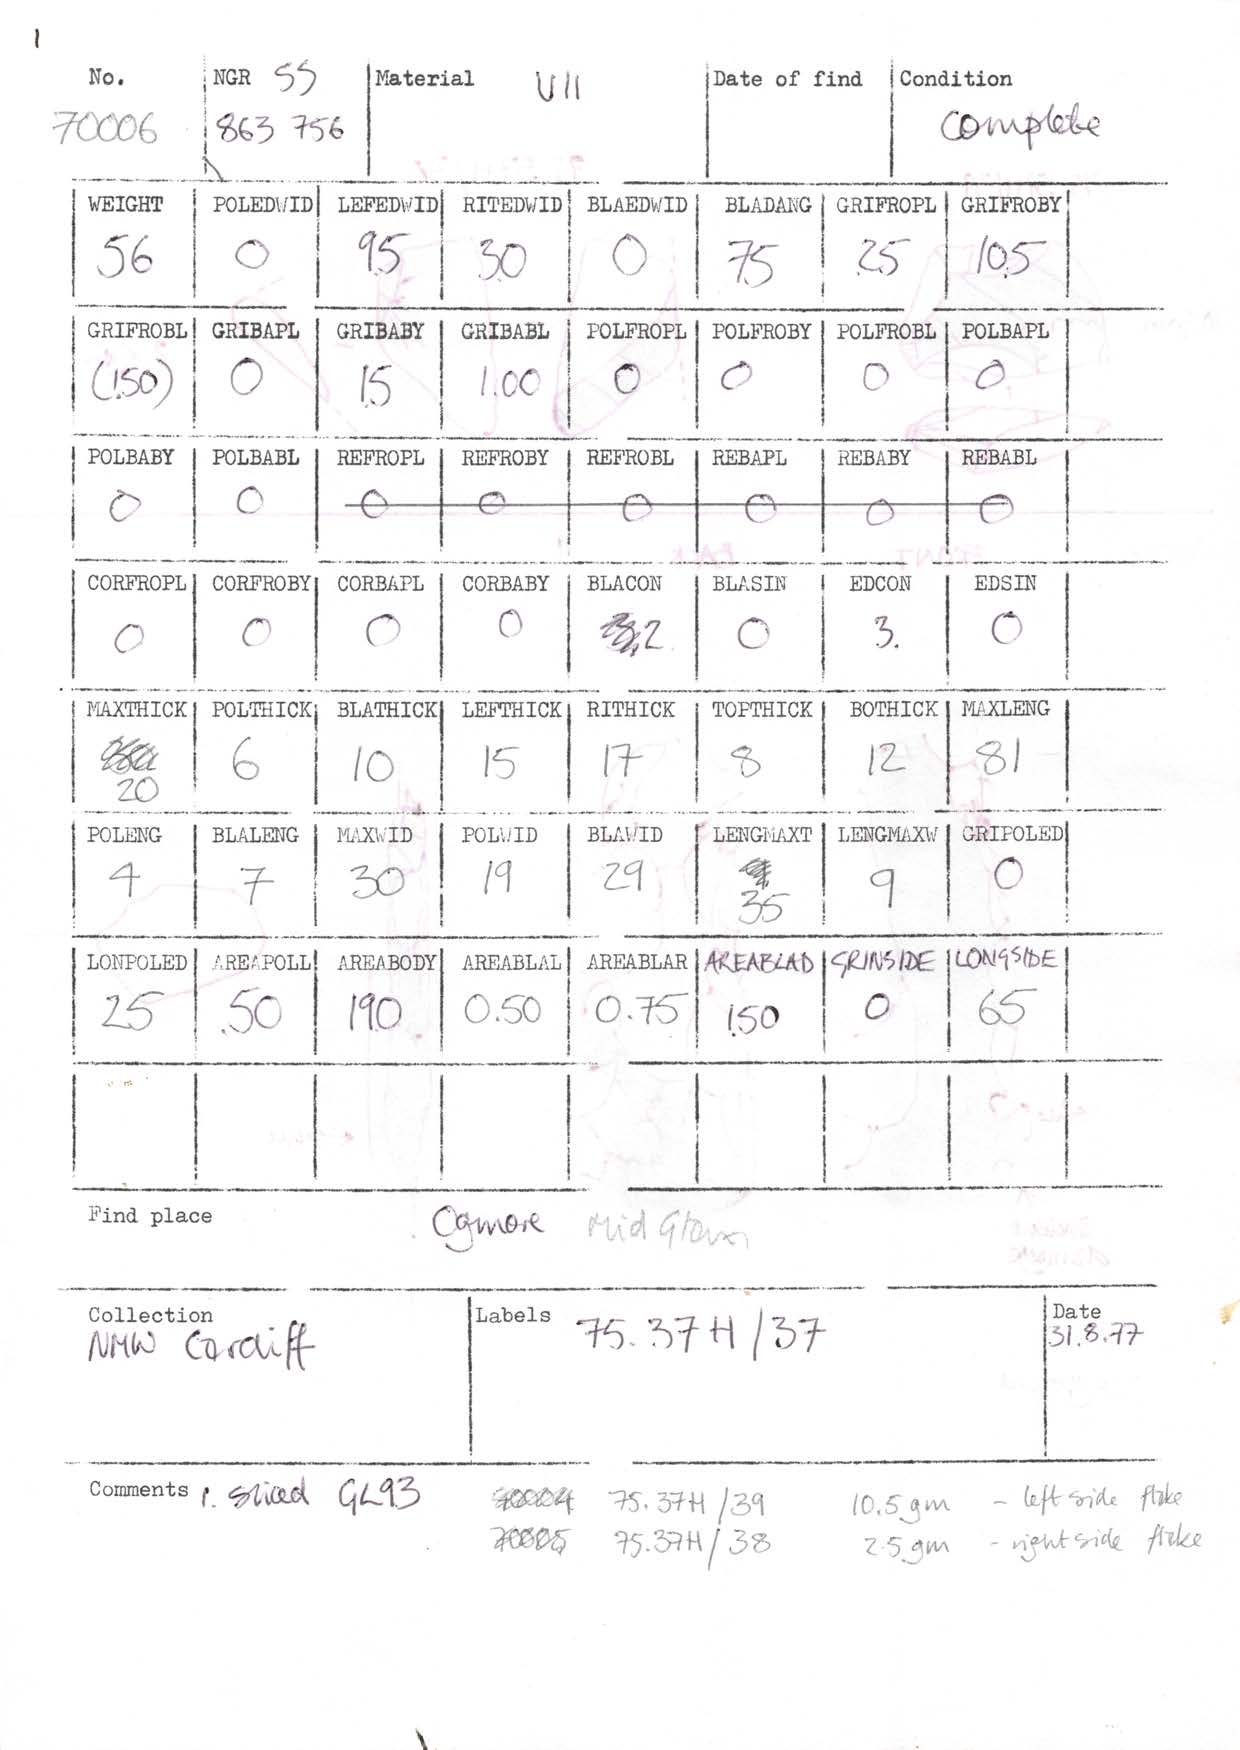 1
No. NGR SS Material VII Date of find Condition
70006 863 756 Complete
WEIGHT POLEDWID LEFEDWID RITEDWID BLAEDWID BLADANG GRIFROPL GRIFROBY
56 0 9.5 3.0 0 75 .25 10.5
GRIFROBL GRIBAPL GRIBABY GRIBABL POLFROPL POLFROBY POLFROBL POLBAPL
(1.50) 0 1.5 1.00 0 0 0 0
POLBABY POLBABL REFROPL REFROBY REFROBL REBAPL REBABY REBABL
0 0 0 0 0 0 0 0
CORFROPL CORFROBY CORBAPL CORBABY BLACON BLASIN EDCON EDSIN
0 0 0 0 2 0 3. 0
MAXTHICK POLTHICK BLATHICK LEFTHICK RITHICK TOPTHICK BOTHICK MAXLENG
20 6 10 15 17 8 12 81
POLENG BLALENG MAXWID POLWID BLAWID LENGMAXT LENGMAXW GRIPOLED
4 7 30 19 29 35 9 0
LONPOLED AREAPOLL AREABODY AREABLAL AREABLAR AREABLAD GRINSIDE LONGSIDE
25 .50 19.0 0.50 0.75 1.50 0 65
Find place Ogmore Mid Glam
Collection Labels 75.37H/37 Date
NMW Cardiff 31.8.77
Comments 1. sliced GL93 75.37H/39 10.5 gm - left side flake
75.37H/38 2.5 gm - right side flake